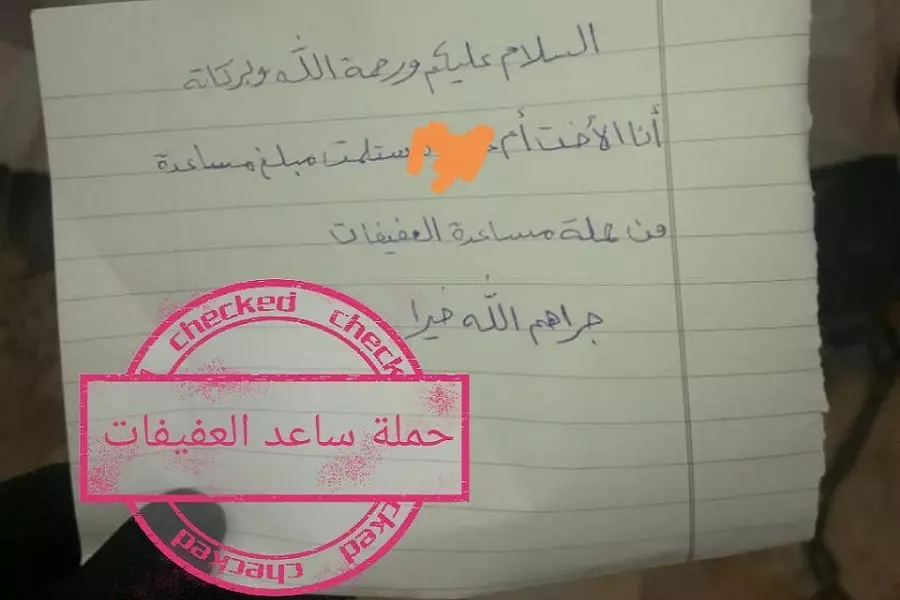 السلام عليكم ورحمة الله وبركاتة
أنا الأخت أم ستلمت مبلغ مساعدة
من حملة مساعدة العفيفات
جراهم الله خيرا
checked checked
حملة ساعد العفيفات
checked checked checked